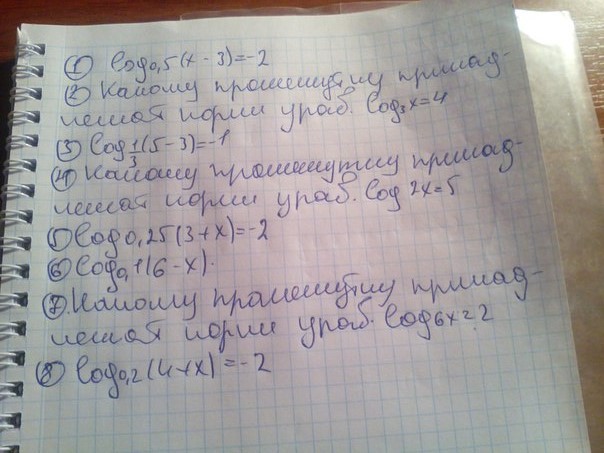 ① log0,5(x - 3)=-2
② Какому промежутку принад-
лежат корни урав. log3x=4
③ log1/3(5-3)=-1
④ Какому промежутку принад-
лежат корни урав. log 2x=5
⑤ log0,25(3+x)=-2
⑥ log0,1(6-x).
⑦.Какому промежутку принад-
лежат корни урав. log6x=2
⑧ log0,2(4+x)=-2